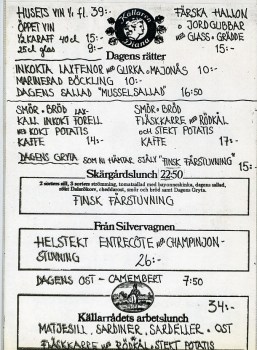 HUSETS VIN ½ fl. 39:-
ÖPPET VIN
½ KARAFF 40 cl 15:-
25 cl glas 9:-
Källaren
Diana
FÄRSKA HALLON
o JORDGUBBAR
MED GLASS o GRÄDDE
15:-
Dagens rätter
INKOKTA LAXFENOR MED GURKA o MAJONÄS 10:-
MARINERAD BÖCKLING 10:-
DAGENS SALLAD "MUSSELSALLAD" 16:50
SMÖR - BRÖD
KALL INKOKT FORELL
MED KOKT POTATIS
KAFFE 14:-
SMÖR - BRÖD
FLÄSKKARRE MED RÖDKÅL
OCH STEKT POTATIS
KAFFE 17:-
DAGENS GRYTA SOM NI HÄMTAR SJÄLV "FINSK FÄRSTUVNING" 15:-
Skärgårdslunch 22:50
2 sorters sill, 3 sorters strömming, tomatsallad med bayonneskinka, dagens sallad,
FINSK FÄRSTUVNING
Från Silvervagnen
HELSTEKT ENTRECÔTE MED CHAMPINJON-
STUVNING 26:-
DAGENS OST - CAMEMBERT 7:50
34:-
Källarrådets arbetslunch
MATJESILL, SARDINER, SARDELLER, OST
FLÄSKKARRE MED RÖDKÅL o STEKT POTATIS